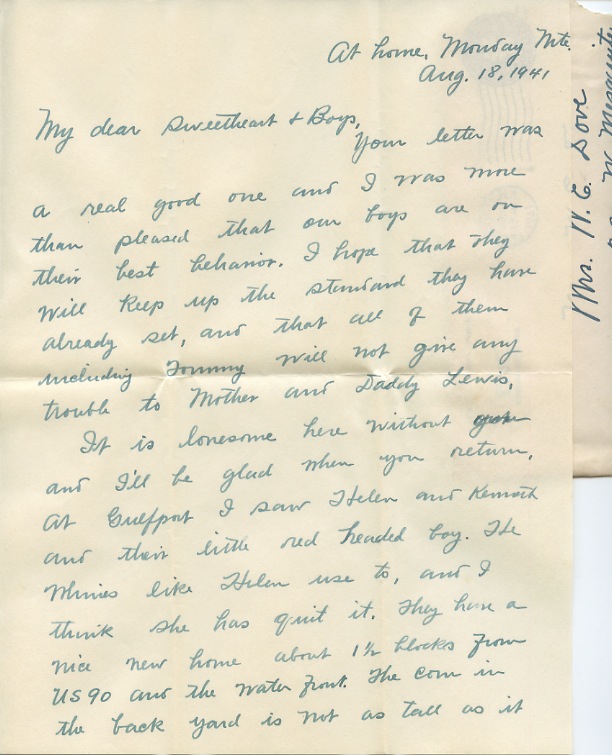 At home, Monday Nite.
Aug. 18, 1941
My dear Sweetheart & Boys,
Your letter was
a real good one and I was more
than pleased that our boys are on
their best behavior. I hope that they
will keep up the standard they have
already set, and that all of them
including Tommy will not give any
trouble to Mother and Daddy Lewis.
It is lonesome here without
and I'll be glad when you return.
At Gulfport I saw Helen and Kenneth
and their little red headed boy. He
whines like Helen use to, and I
think she has quit it. They have a
nice new home about 1½ blocks from
US 90 and the water front. The corn in
the back yard is not as tall as it
Mrs. W. C. Dove